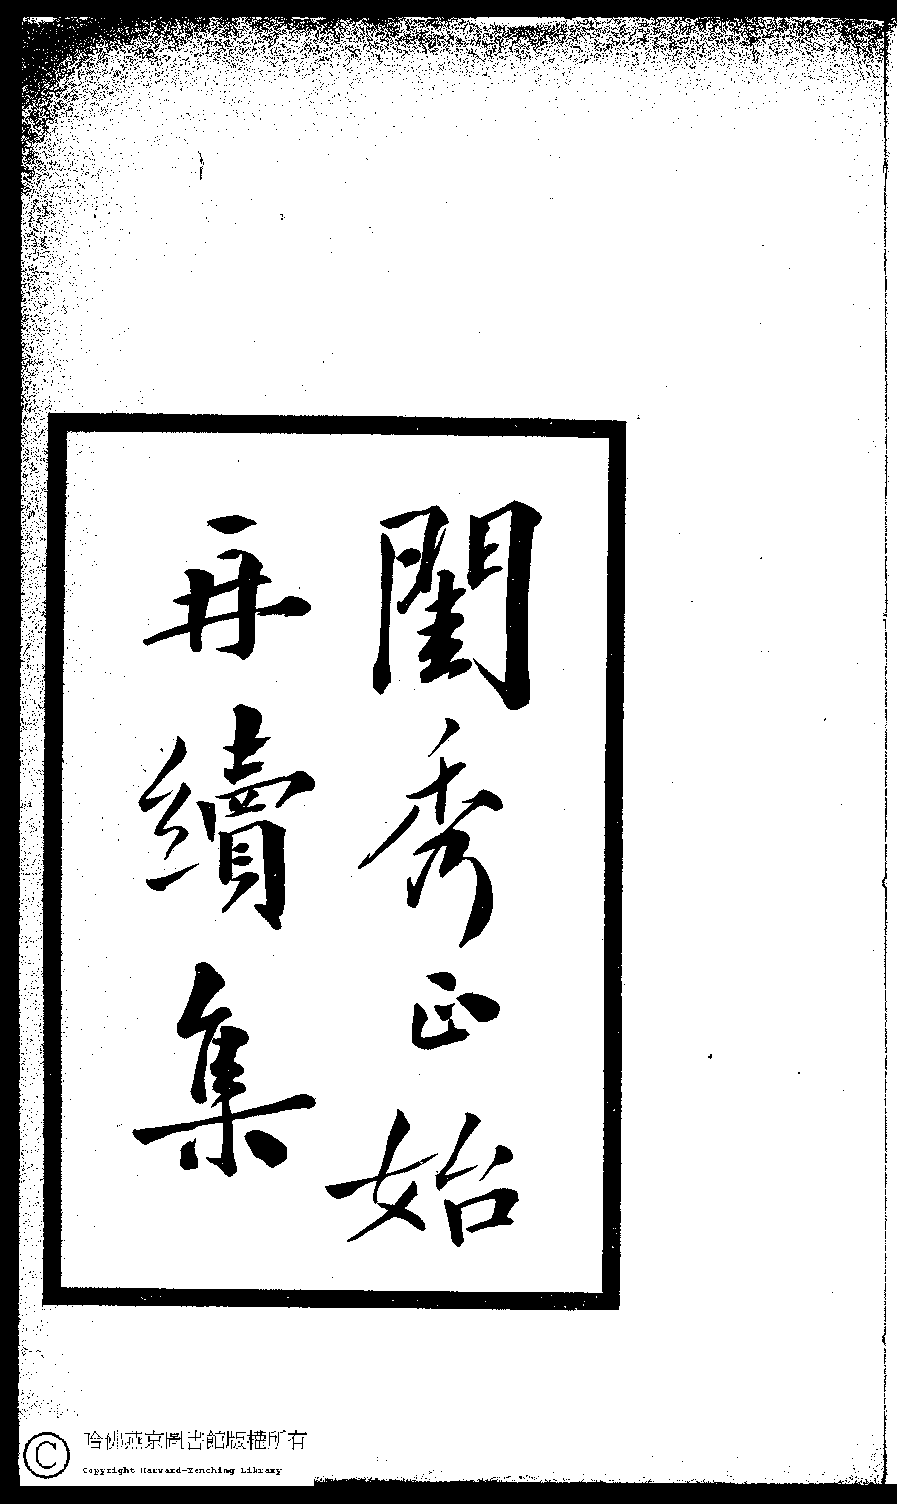 閨秀正始
再續集
哈佛燕京圖書館版權所有
Copyright Harvard-Yenching Library